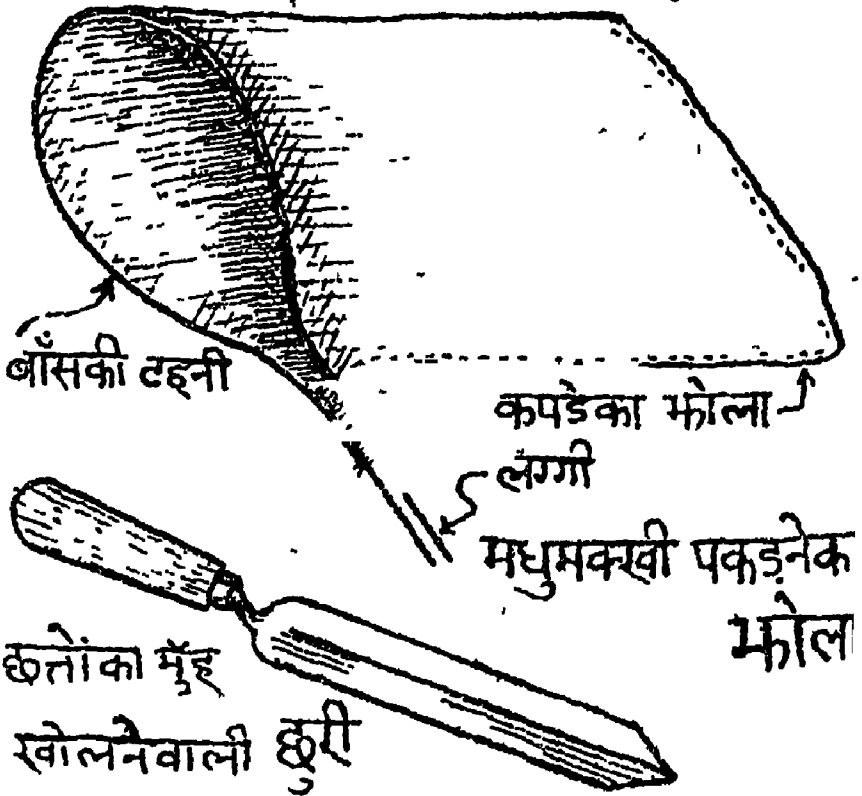 बाँसकी टहनी
कपडेका झोला
लग्गी
मधुमक्खी पकड़नेक
झोला
छत्तोंका मुँह
खोलनेवाली छुरी